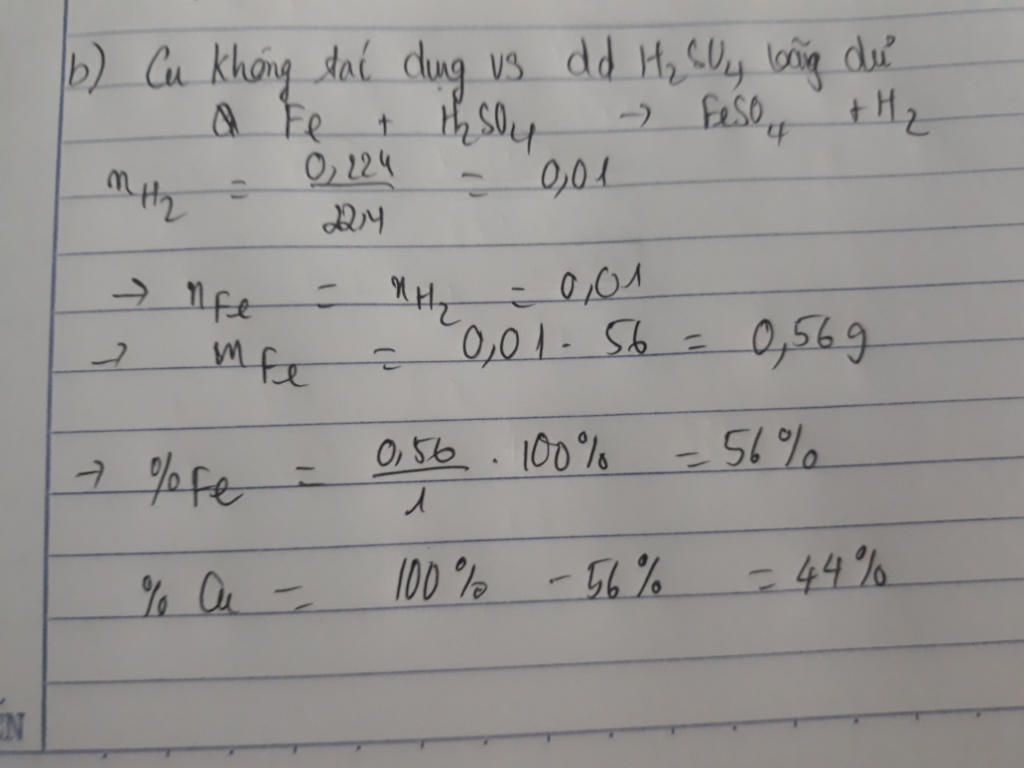 b) Cu không tác dụng vs dd H₂SO₄ loãng dư
Fe + H₂SO₄ → FeSO₄ + H₂
n H₂ = 0,224 / 22,4 = 0,01
→ n Fe = n H₂ = 0,01
→ m Fe = 0,01 . 56 = 0,56g
→ % Fe = 0,56 / 1 . 100% = 56%
% Cu = 100% - 56% = 44%